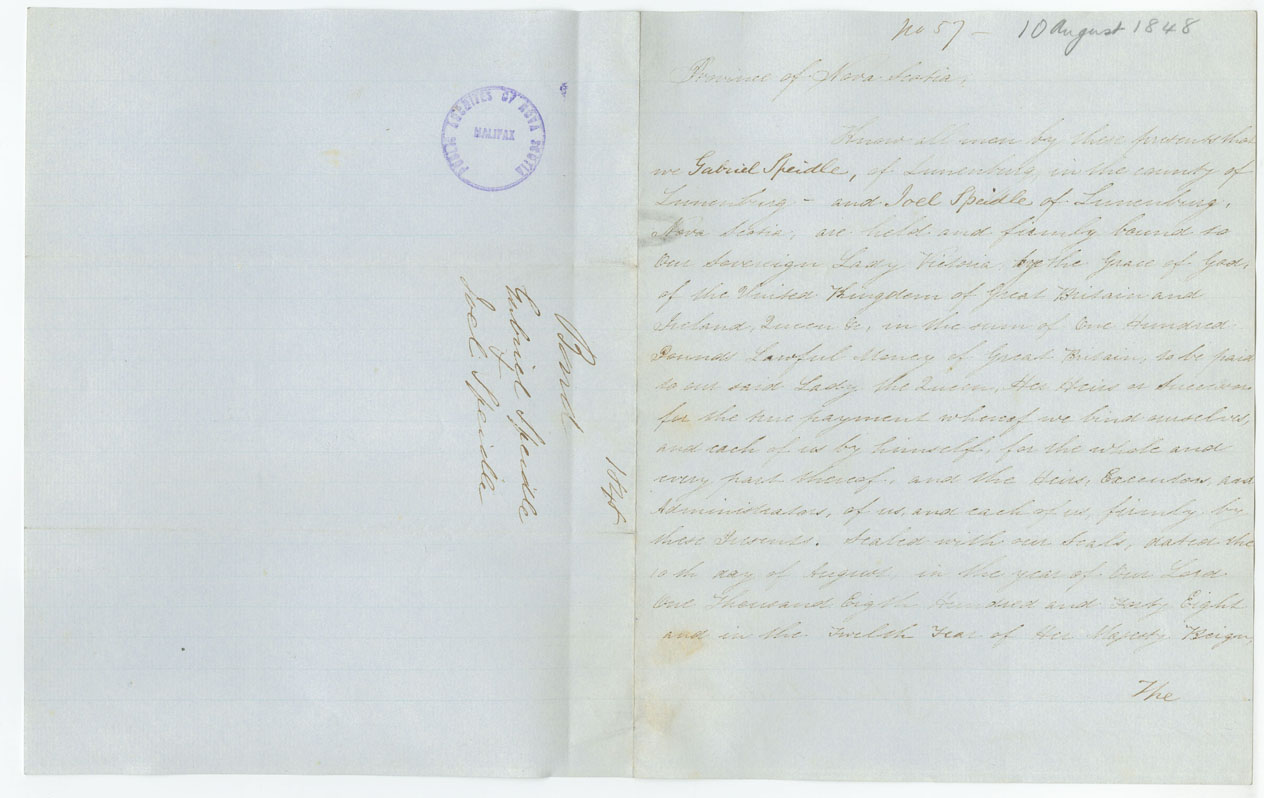 PUBLIC ARCHIVES OF NOVA SCOTIA
HALIFAX
Bond
Gabriel Speidle
&
Joel Speidle
1848
No 57 - 10 August 1848
Province of Nova Scotia,
Know all men by these presents that
we Gabriel Speidle, of Lunenburg, in the county of
Lunenburg - and Joel Speidle of Lunenburg,
Nova Scotia, are held and firmly bound to
Our Sovereign Lady Victoria by the Grace of God,
of the United Kingdom of Great Britain and
Ireland, Queen &c, in the sum of One Hundred
Pounds Lawful Money of Great Britain, to be paid
to our said Lady the Queen, Her Heirs or Successors
for the true payment whereof we bind ourselves,
and each of us by himself, for the whole and
every part thereof, and the Heirs, Executors, and
Administrators, of us, and each of us, firmly by
these Presents. Sealed with our Seals, dated the
10th day of August, in the year of Our Lord
One Thousand Eigth Hundred and Forty Eight
and in the Twelth Year of Her Majesty Reign,
The